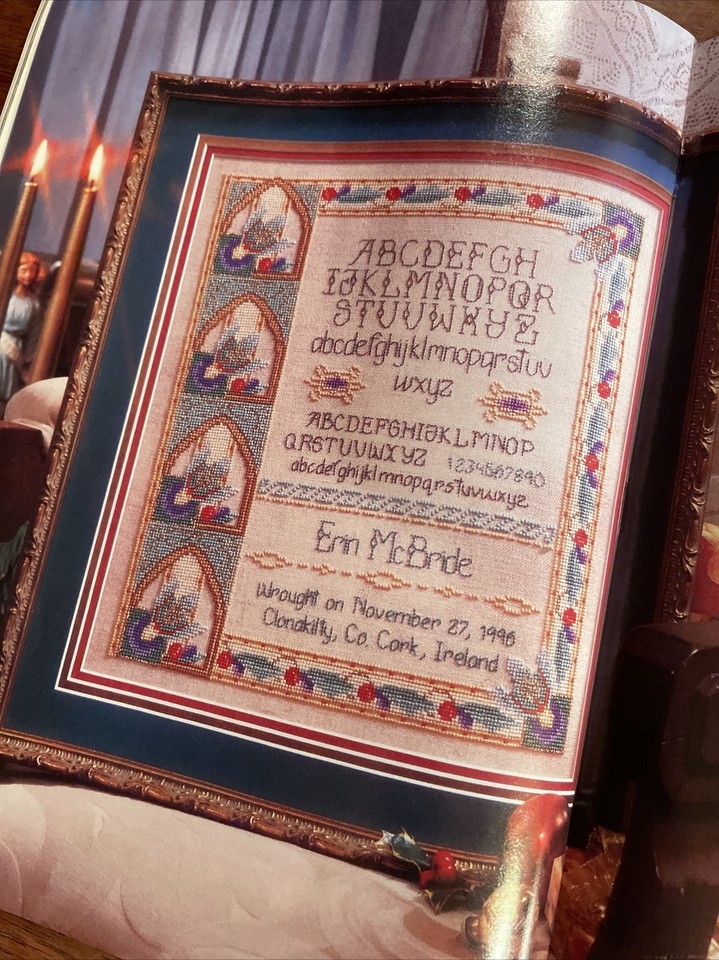 ABCDEFGH
IJKLMNOPQR
STUVWXYZ
abcdefghijklmnopqrstuv
wxyz
ABCDEFGHIJKLMNOP
QRSTUVWXYZ 1234567890
abcdefghijklmnopqrstuvwxyz
Erin McBride
Wrought on November 27, 1996
Clonakilty, Co. Cork, Ireland